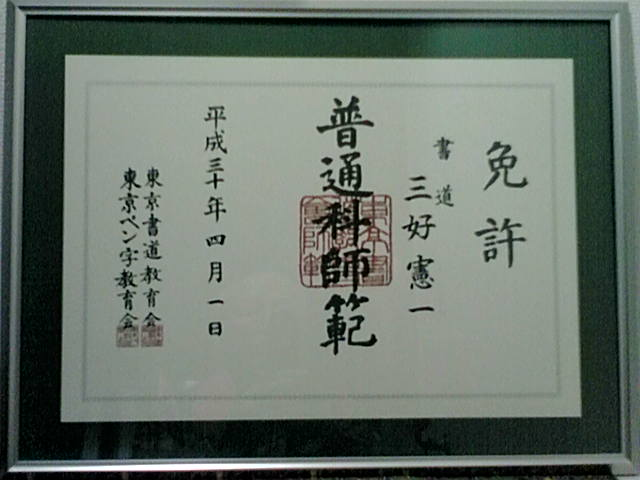 免許
書道
三好憲一
普通科師範
平成三十年四月一日
東京書道教育会
東京ペン字教育会